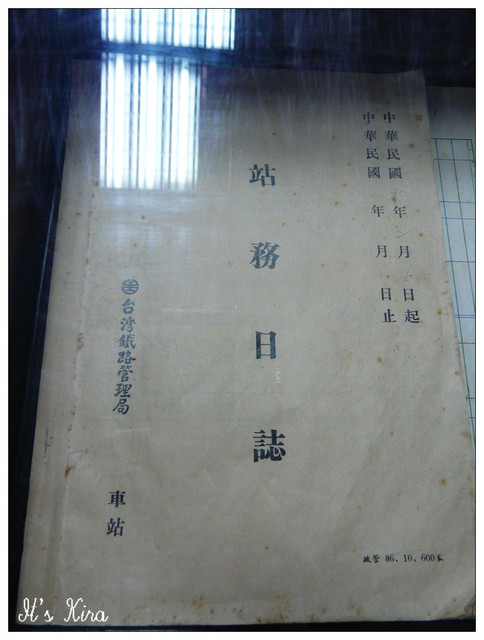 中華民國 年 月 日起
中華民國 年 月 日止
站務日誌
台灣鐵路管理局
車站
政營 86.10.600本
It's Kira